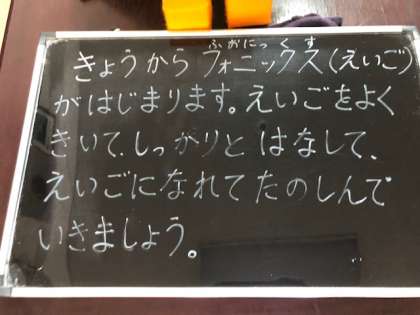 ふぉにっくす
きょうから フォニックス(えいご)
がはじまります。えいごをよく
きいて、しっかりと はなして、
えいごになれて たのしんで
いきましょう。